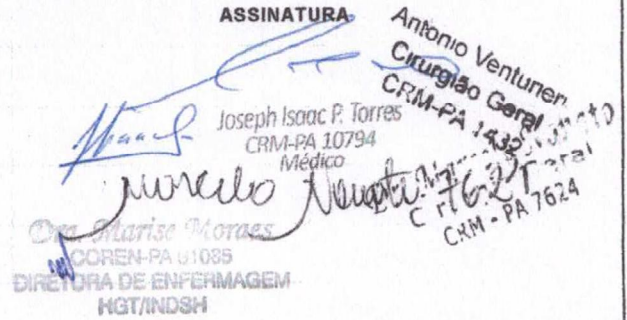 ASSINATURA
Antonio Venturieri
Cirurgião Geral
CRM-PA 1432
Joseph Isaac P. Torres
CRM-PA 10794
Médico
Marcelo 7624
Geral
CRM - PA 7624
Dra. Marise Moraes
COREN-PA 61085
DIRETORA DE ENFERMAGEM
HGT/INDSH